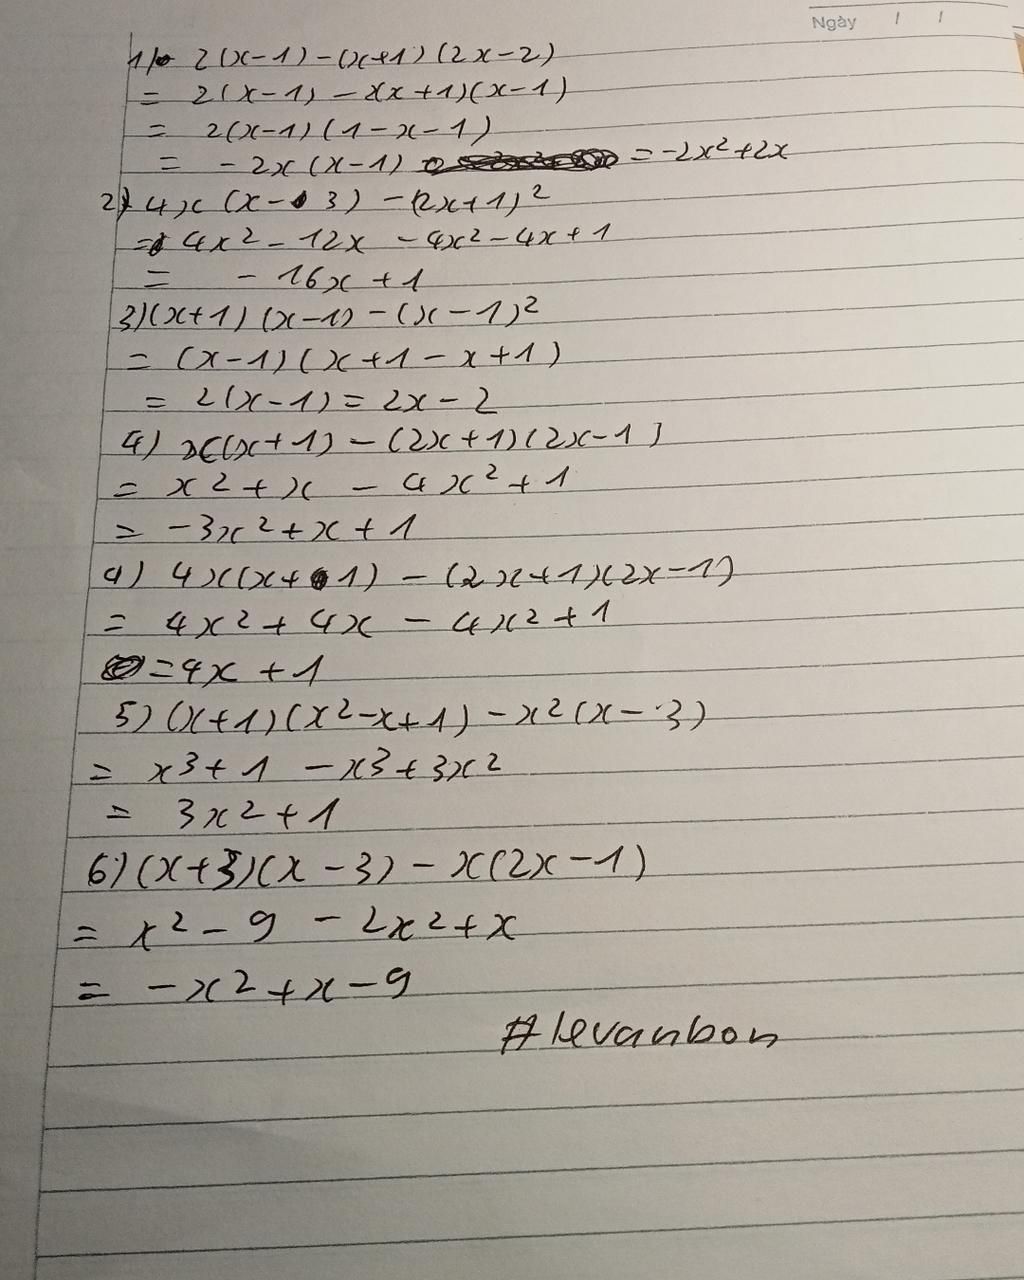 Ngày / /
1) 2(x-1) - (x+1)(2x-2)
= 2(x-1) - 2(x+1)(x-1)
= 2(x-1)(1-x-1)
= -2x(x-1) = -2x²+2x
2) 4x(x-3) - (2x+1)²
= 4x² - 12x - 4x² - 4x + 1
= - 16x + 1
3) (x+1)(x-1) - (x-1)²
= (x-1)(x+1-x+1)
= 2(x-1) = 2x-2
4) x(x+1) - (2x+1)(2x-1)
= x² + x - 4x² + 1
= -3x² + x + 1
4) 4x(x+1) - (2x+1)(2x-1)
= 4x² + 4x - 4x² + 1
= 4x + 1
5) (x+1)(x²-x+1) - x²(x-3)
= x³ + 1 - x³ + 3x²
= 3x² + 1
6) (x+3)(x-3) - x(2x-1)
= x² - 9 - 2x² + x
= -x² + x - 9
#levanbon